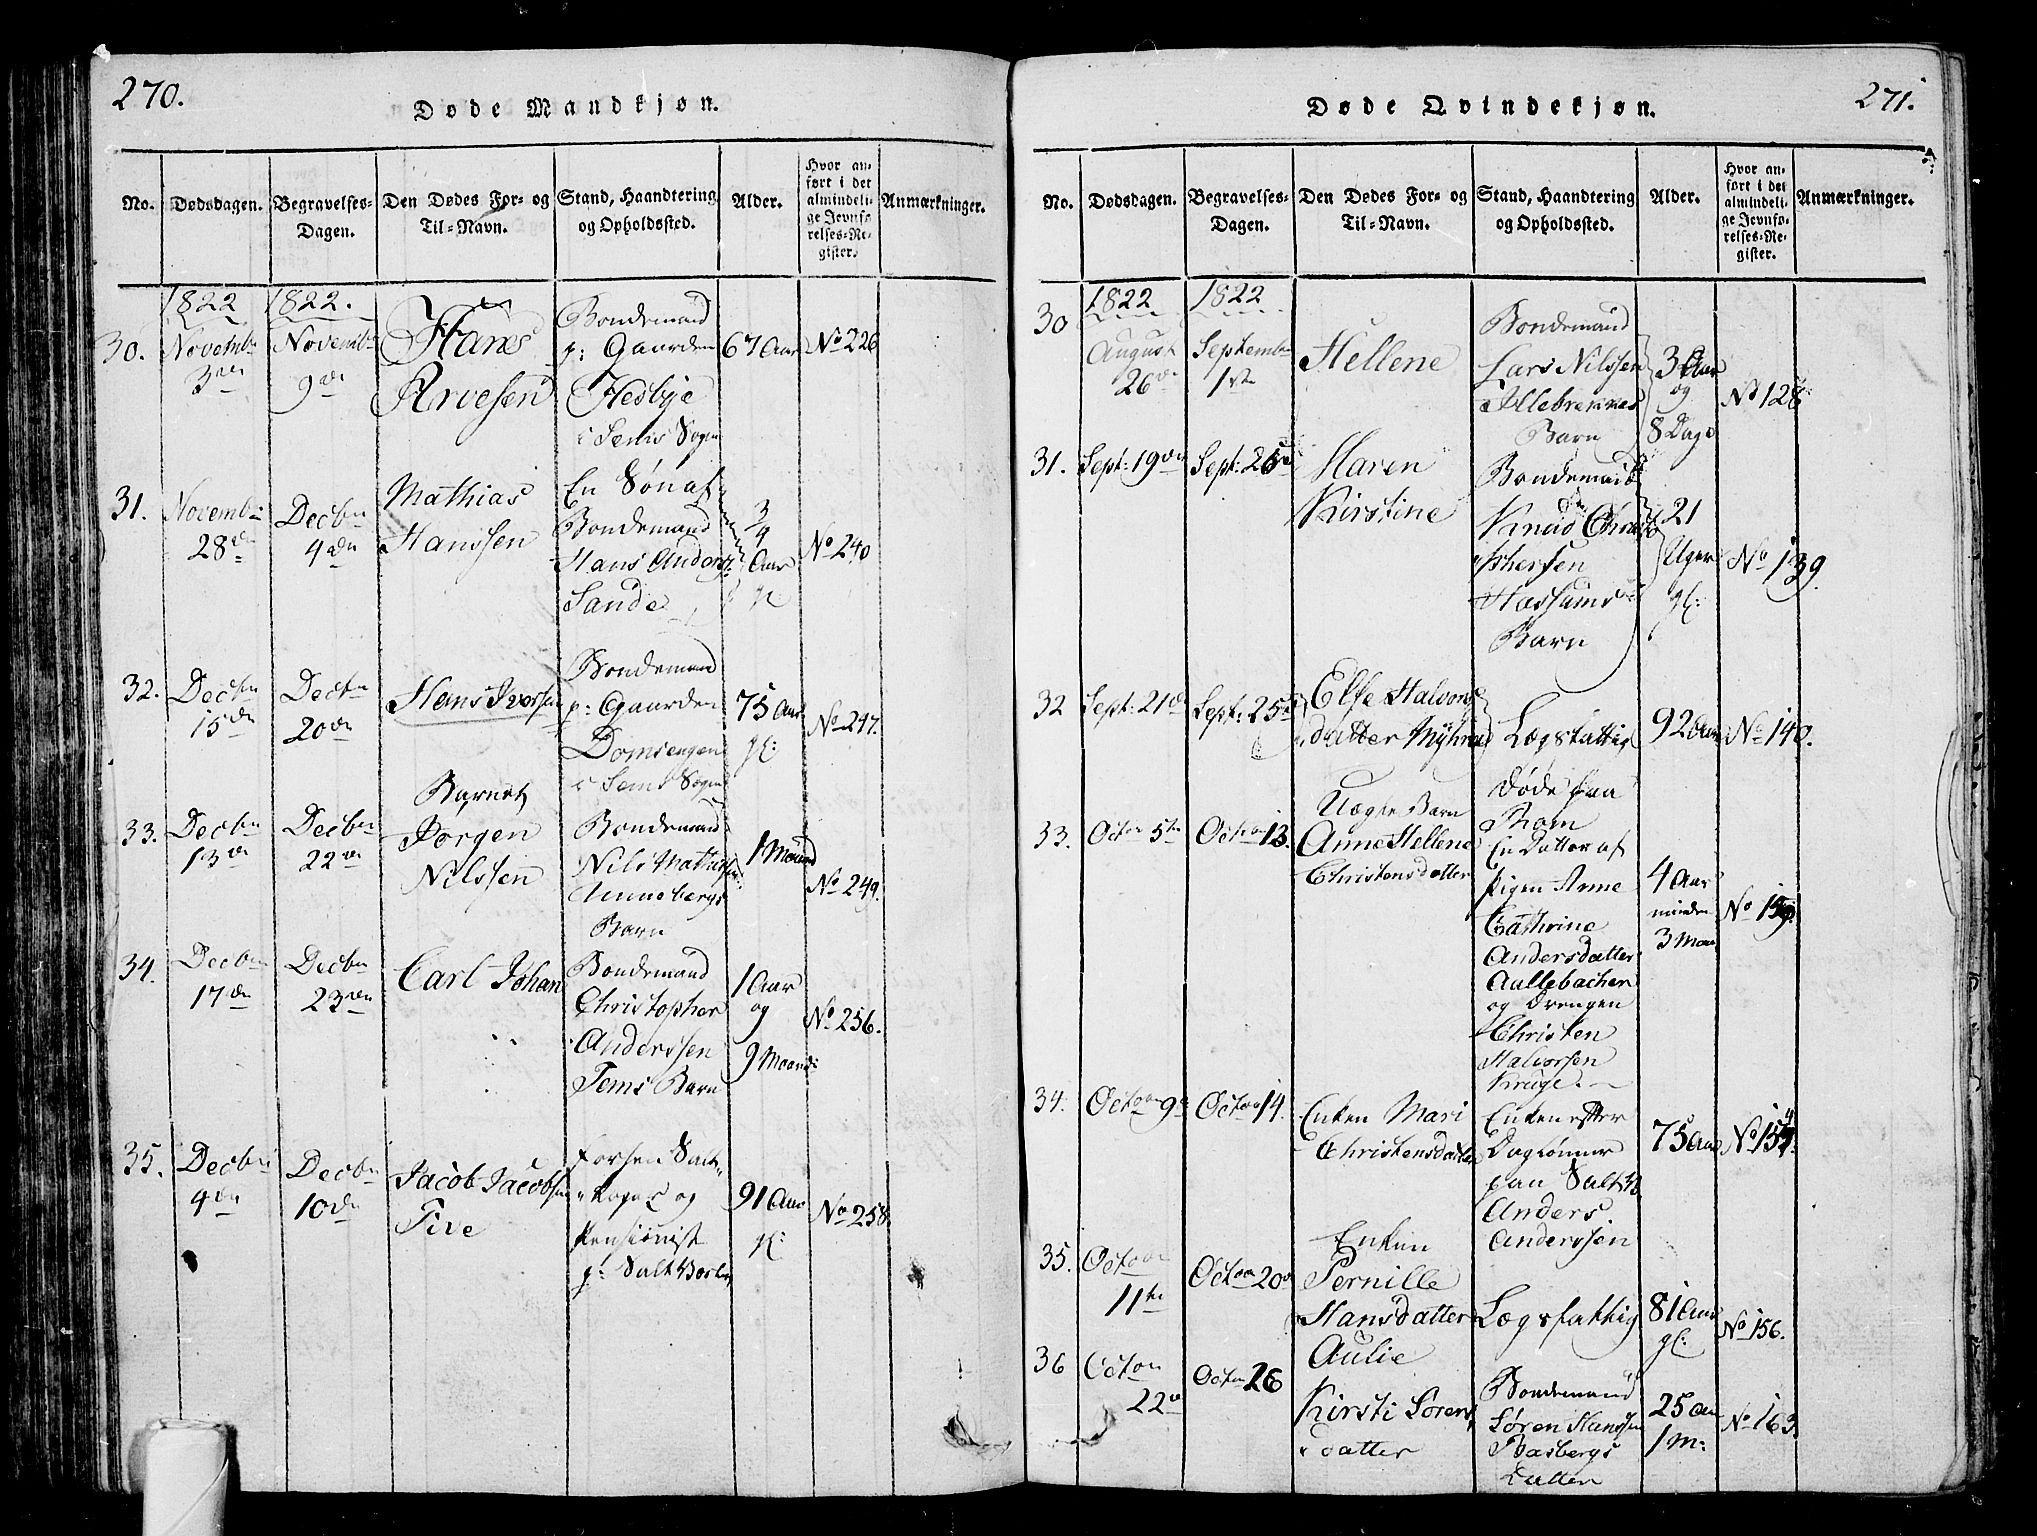 270.
Døde Mandkjøn.
No.
Dødsdagen.
Begravelses-
Dagen.
Den Dødes For- og
Til-Navn.
Stand, Haandtering
og Opholdssted.
Alder.
Hvor an-
ført i det
almindeli-
ge Jevnfø-
relses-Re-
gister.
Anmærkninger.
1822
1822.
30.
Novembr
3die
Novembr
9de
Hans
Arvesen
Bondemand
p: Gaarden
Hesbye
i Sems Sogn
67 Aar
No 226
31.
Novembr
28de
Decbr
4de
Mathias
Hanssen
En Søn af
Bondemand
Hans Anders:
Sande
3/4
Aar
gl:
No 240
32.
Decbr
15de
Decbr
20de
Hans Iversen
Bondemand
p: Gaarden
Domsengen
i Sems Sogn
75 Aar
gl:
No 247.
33.
Decbr
13de
Decbr
22de
Barnet
Jørgen
Nilssen
Bondemand
Nils Mathissen
Unnebergs
Barn
1 Maaned
No 249.
34.
Decbr
17de
Decbr
23de
Carl Johan
Bondemand
Christopher
Anderssen
Tems Barn
1 Aar
og
9 Maand:
No 256.
35.
Decbr
4de
Decbr
10de
Jacob Jacobsen
Five
forhen Salt-
koger og
Pensionist
p: Saltværket
91 Aar
gl:
No 258.
271.
Døde Qvindekjøn.
No.
Dødsdagen.
Begravelses-
Dagen.
Den Dødes For- og
Til-Navn.
Stand, Haandtering
og Opholdssted.
Alder.
Hvor an-
ført i det
almindeli-
ge Jevnfø-
relses-Re-
gister.
Anmærkninger.
1822
1822
30
August
26de
Septembr
1ste
Hellene
Bondemand
Lars Nilssen
Illebrekkes
Barn
3 Aar
og
8 Dage
No 128
31.
Sept: 19de
Sept: 25de
Maren
Kirstine
Bondemand
Knud Chri-
sthersen
Hassums
Barn
21
Uger
gl:
No 139.
32
Sept: 21de
Sept: 25de
Else Halvors
datter Myhre
Lægsfattig
92 Aar
No 140.
33.
Octor 5te
Octor 13.
Uægte Barn
Anne Hellene
Christensdatter
Døde paa
Rom
En Datter af
Pigen Anne
Cathrine
Andersdatter
Aullebachen
og Drengen
Christen
Halvorsen
Kruge.
4 Aar
minder
3 Maa
No 150.
34.
Octor 9de
Octor 14.
Enken Mari
Christensdatter
Enken efter
Daglønner
paa Saltv.
Anders
Anderssen
75 Aar
No 154.
35.
Octor
11te
Octor 20de
Enken
Pernille
Hansdatter
Aulie
Lægsfattig
81 Aar
gl:
No 156.
36
Octor
22de
Octor 26
Kirsti Sørens
datter
Bondemand
Søren Hanssen
Basbergs
Datter
25 Aar
1 M:
No 163.